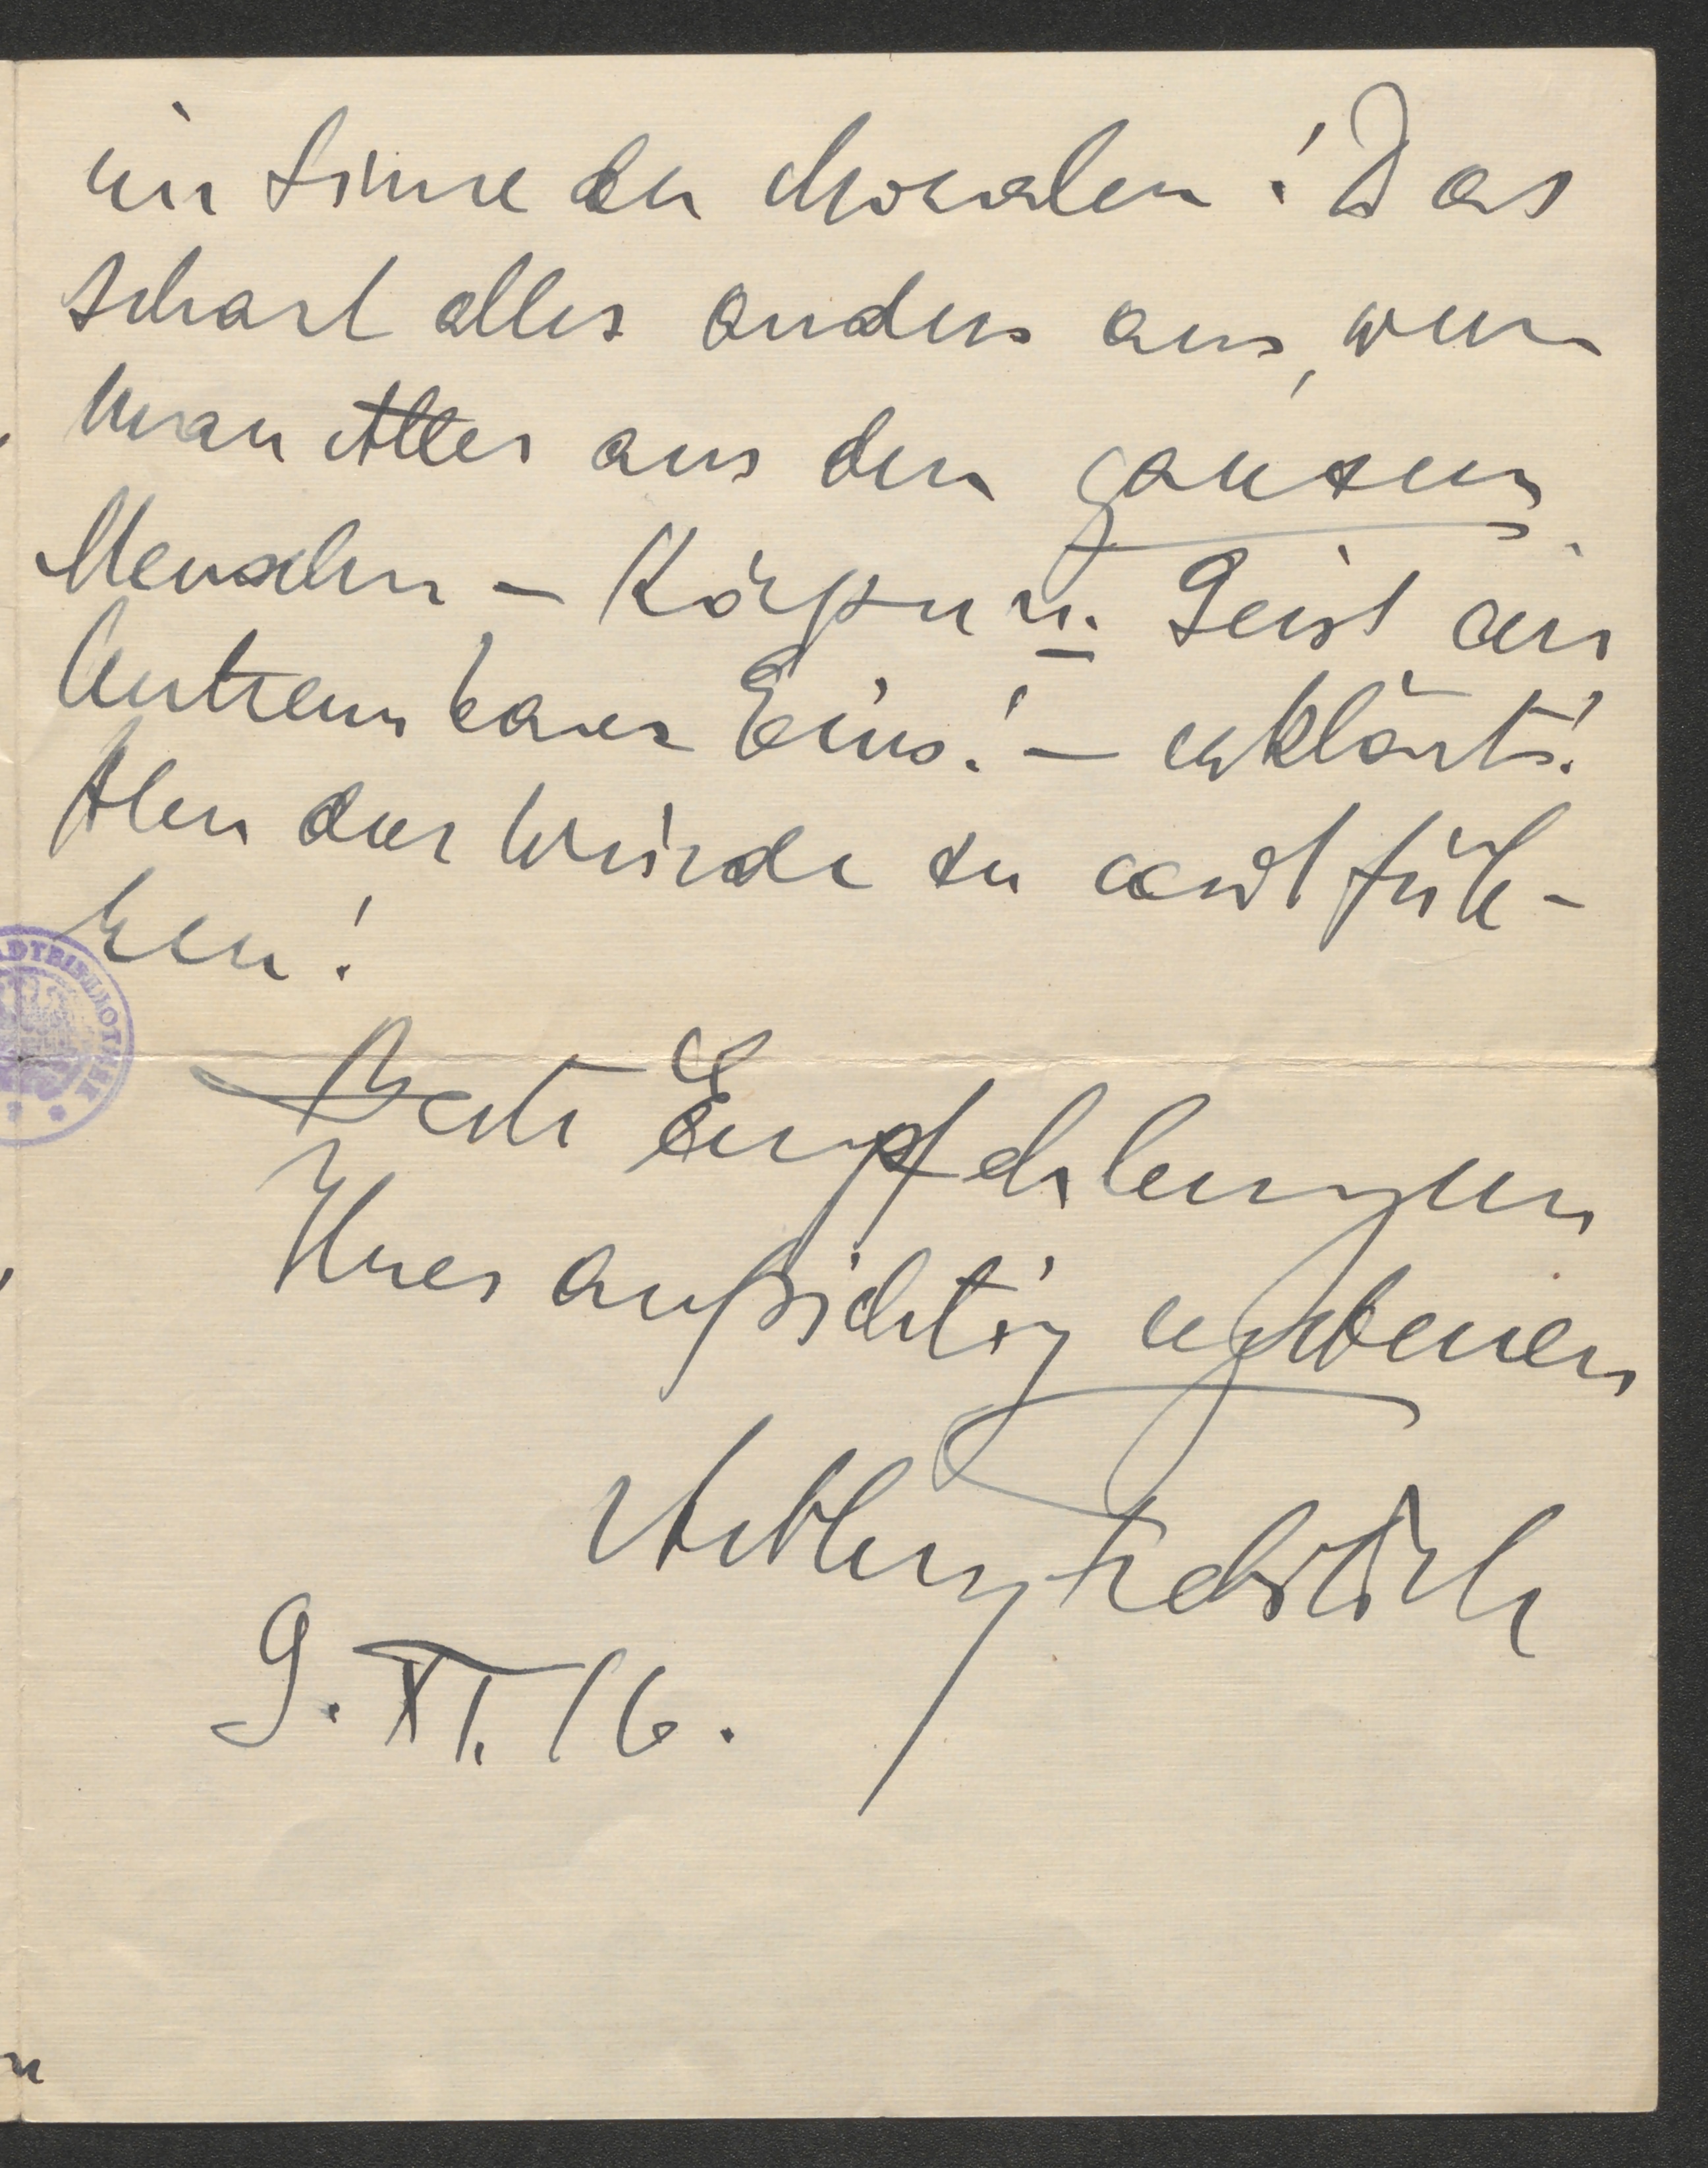 im Sinne der Moralen! Das
schaut alles anders aus, wenn
man Alles aus dem ganzen
Menschen – Körper u. Geist ein
Untrennbares Eins! – erklärt!
Aber das würde zu weit füh-
ren!
Beste Empfehlungen
Ihres aufrichtig ergebenen
9. XI. 16.